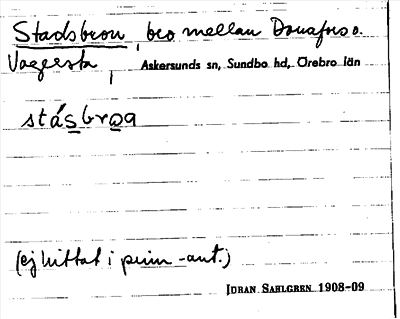 Stadsbron, bro mellan Donafors o.
Vageesta, Askersunds sn, Sundbo hd, Örebro län
stásbrǫa
(ej hittat i prim-ant.)
JOHAN SAHLGREN 1908-09